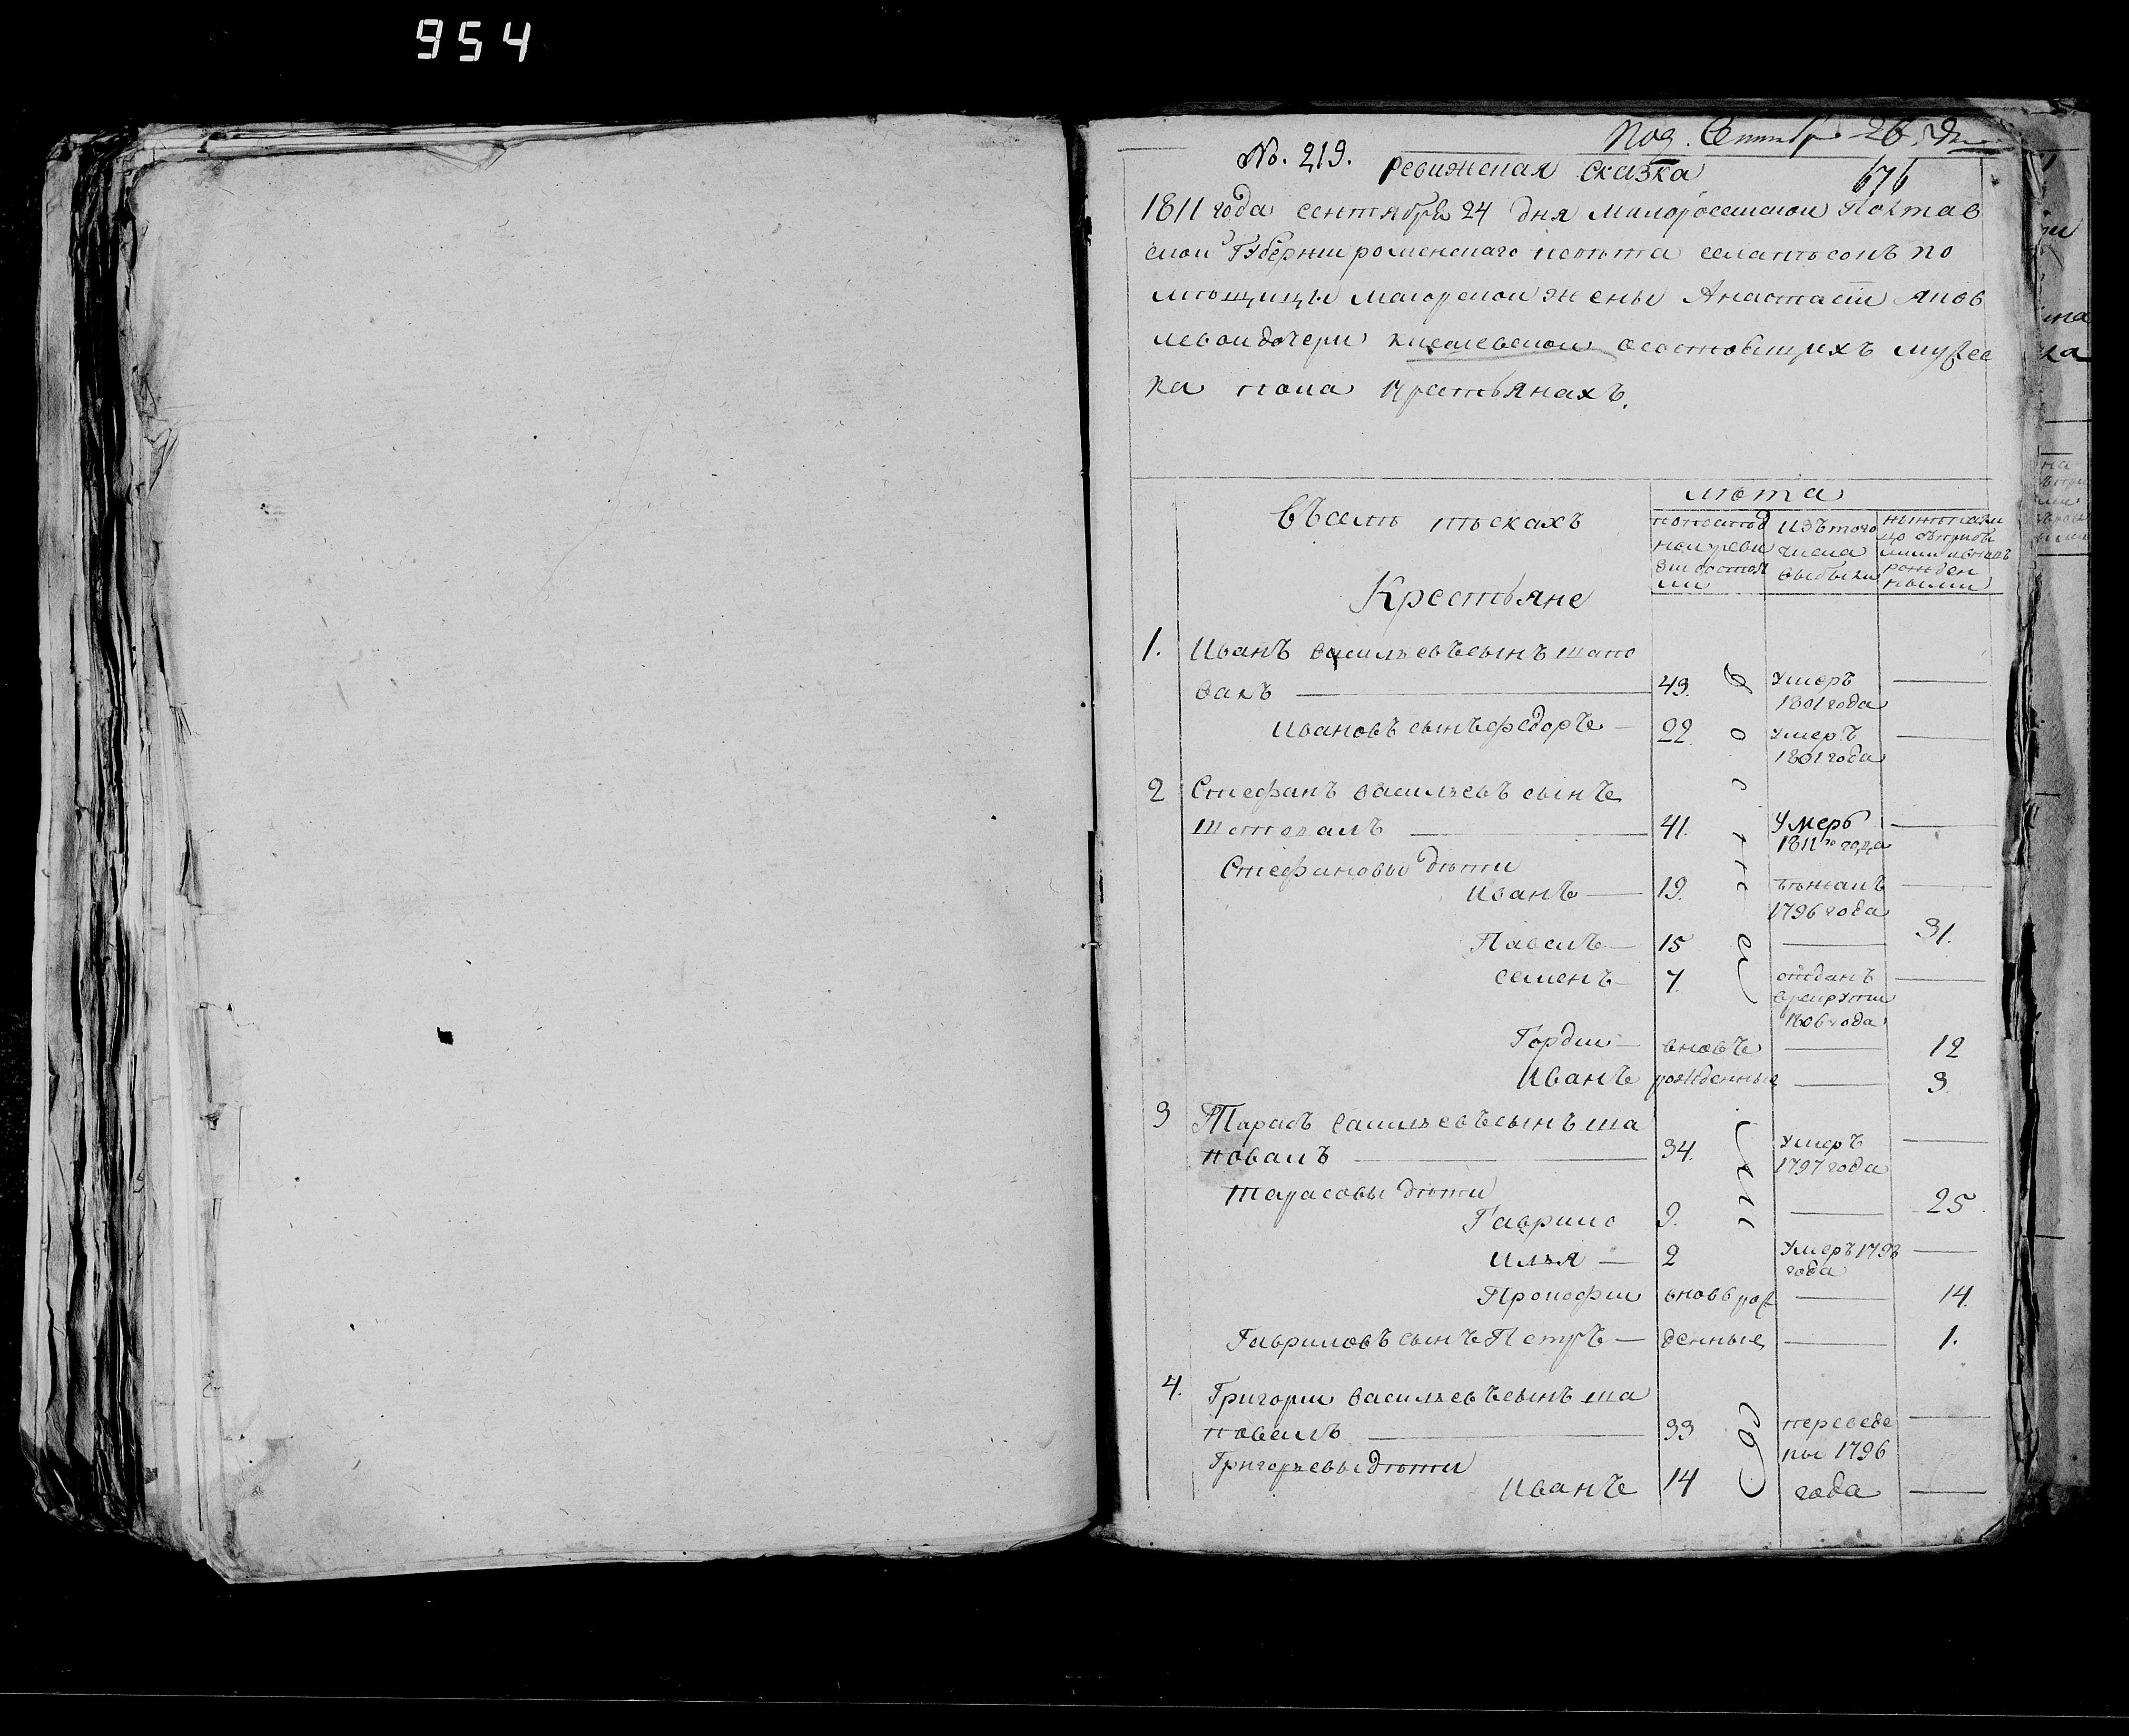 954
Под. Сентябр 26. Дн
No. 219. ревижская сказка
676
1811 года сентября 24 дня малоросииской Полтав
ской Губернии роменскаго повѣта села
мѣщицы маиорской жены Анастасіи яков
левои дочери киселевской осостоящихъ мужес
ка пола крестьянахъ.
лѣта
попослѣд
ной реви
зии состоя
ли
изътого
числа
выбыли
рожден
ными
Крестьяне
1. Иванъ васильевъсынъ шапо
валъ 49. умеръ
1801 года
Ивановъ сынъ федоръ 22. умеръ
1801 года
2 Стефанъ васильевъ сынъ
Шаповалъ 41. Умеръ
1811го года
Стефановы дѣти
Иванъ 19. бѣжалъ
1796 года
Павелъ 15 31.
семенъ 7. отданъ
врекруты
1806 года
Гордии вновъ 12
Иванъ рожденные 3
3 Тарасъ васильевъсынъ ша
повалъ 34. умеръ
1797 года
тарасовы дѣти
Гаврило 9. 25
илья 2 умеръ 1798
года
Прокофии вновь рож 14.
Гавриловъ сынъ Петръ денные 1.
4. Григории васильевъсынъ ша
повалъ 33 переведе
ны 1796
Григорьевы дѣти
Иванъ 14 года